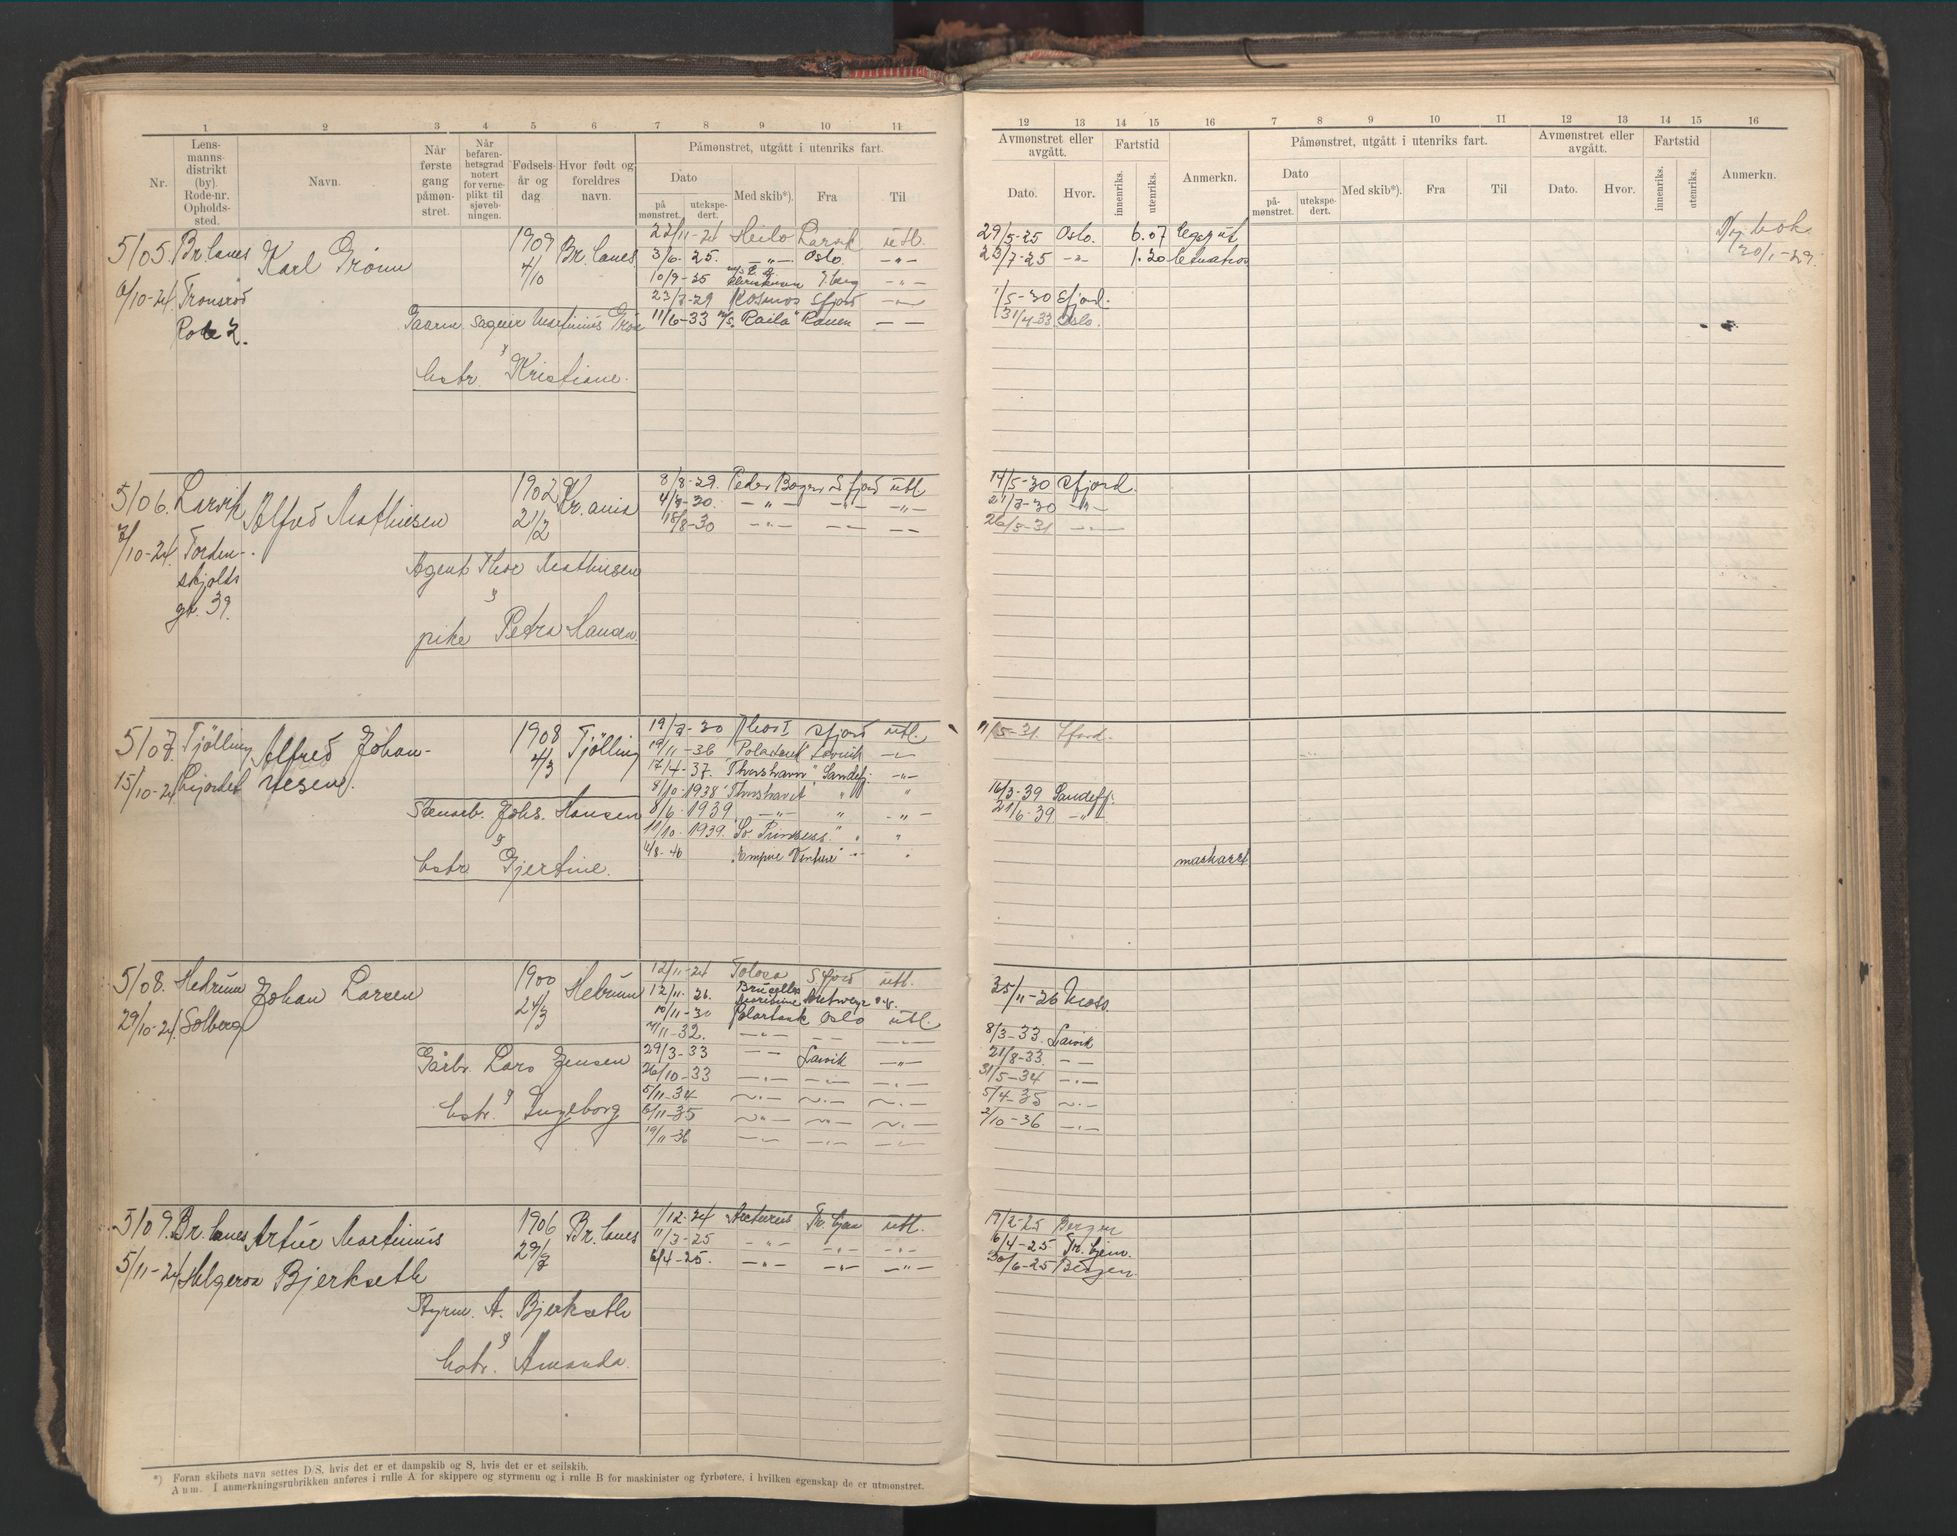 1 2 3 4 5 6 7 8 9 10 11
Nr. Lensmannsdistrikt (by). Rode-nr. Opholdssted. Navn. Når første gang påmønstret. Når befarenhetsgrad notert for verneplikt til sjøvebningen. Fødselsår og dag Hvor født og foreldres navn. Påmønstret, utgått i utenriks fart.
Dato
på mønstret. utekspedert. Med skib*). Fra Til
12 13 14 15 16 7 8 9 10 11 12 13 14 15 16
Avmønstret eller avgått. Fartstid Anmerkn. Påmønstret, utgått i utenriks fart. Avmønstret eller avgått. Fartstid Anmerkn.
Dato. Hvor. innenriks. utenriks. Dato påmønstret. utekspedert. Med skib*). Fra Til Dato. Hvor. innenriks. utenriks.
5105 Br.lanes Karl Grönn 1909 Br. lanes 22/11-24 Heilo Larvik utl. 29/5-25 Oslo. 6.07 Ny bok
4/10 3/6-25. —„— Oslo. —„— 23/7-25 —„— 1.20 20/1-29.
6/10-24 Tronsrød 10/9-25 —„—
Rode 2. 23/7-29 Kosmos Sfjord —„— 1/5-30 Sfjord.
Martinius 11/6-33 M/S. "Raila" — „ — 31/4-33 Oslo.
&
hstr. Kristiane.
5106. Larvik Alfred Mathisen 1902 Kr.ania 8/8-29. Peder Bogen Sfjord utl 14/5-30 Sfjord.
21/2 4/8-30. —„— —„— —„— 21/7-30 —„—
7/10-24. Tordenskjolds gt. 39. 15/8-30 —„— —„— —„— 26/5-31 —„—
Agent Thor Mathisen
&
pike Petra Hansen.
5107. Tjölling Alfred Johannesen. 1908 Tjölling 19/7-30 Sfjord utl. 11/5-31. Sfjord.
4/3 19/11-36 "Polartank" Larvik —„—
15/10-24 17/4-37. "Thorshavn", Sandefj. —„—
8/10-1938 "Thorshavet" „ „ 16/3-39 Sandefj.
Stenarb. Johs. Hansen 8/6-1939. —„— „ —„— 21/6-39 —„—
& 11/10-1939. "So. Prinsess." „ „
hstr. Gjertine. 4/8-40 "Empire Venture" „ „
5108. Hedrum Johan Larsen 1900 Hedrum 12/11-24 Tolosa Sfjord utl. 25/11-26 Moss.
24/3 12/11-26. Bruxelles Maritime Antwerp
29/10-24. Solberg 10/11-30 Polartank Oslo utl.
7/11-32. —„— —„— —„— 8/3-33. Larvik
Gårbr. Lars Jensen 29/3-33 —„— Larvik —„— 21/8-33. —„—
& 26/10-33 —„— —„— —„— 31/5-34 —„—
hstr. Ingeborg 5/11-34 —„— —„— —„— 5/4-35 —„—
6/11-35 —„— —„— —„— 2/10-36 —„—
19/11-36 —„— —„— —„—
5109. Br. lanes Artur Martinius Bjerkseth 1906 Br. lanes 1/12-24 Arcturus utl. 19/2-25 Bergen
29/7 11/3-25 —„— —„— —„— 6/4-25 Tr.hjem.
5/11-24 Helgeroa 6/4-25. —„— —„— —„— 30/6-25 Bergen.
Styrm. A. Bjerkseth
&
hstr. Amanda.
*) Foran skibets navn settes D/S, hvis det er et dampskib og S, hvis det er et seilskib.
Anm. I anmerkningsrubrikken anføres i rulle A for skippere og styrmenn og i rulle B for maskinister og fyrbøtere, i hvilken egenskap de er utmønstret.